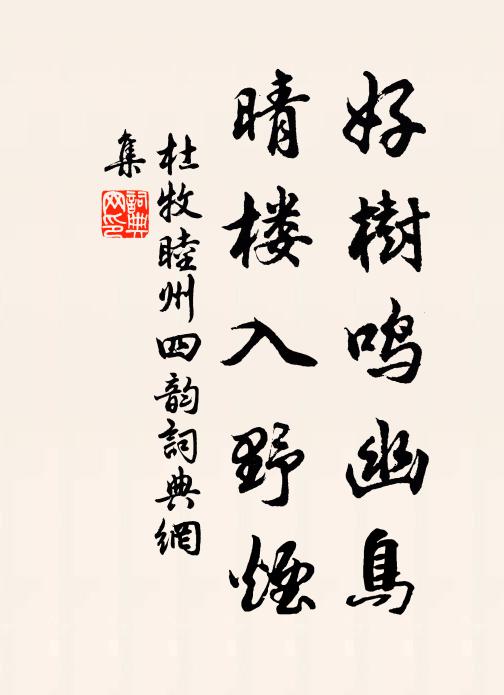 好樹鳴幽鳥
晴楼入野煙
杜牧睦州四韵詞典網
集
詞典
网印